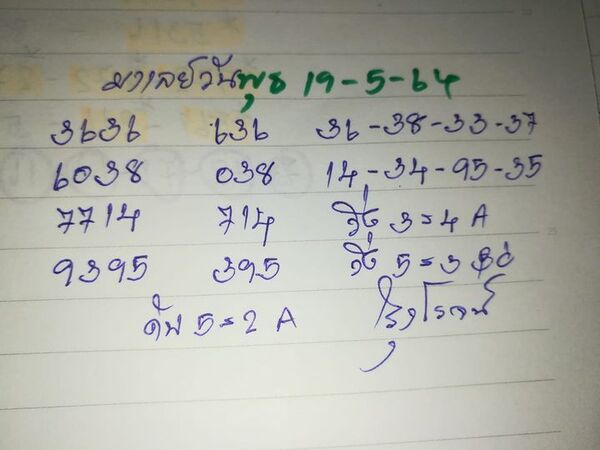 มาเลย์วันพุธ 19-5-64
3636 636 36-38-33-37
6038 038 14-34-95-35
7714 714 วิ่ง 3=4 A
9395 395 วิ่ง 5=3
ดับ 5=2 A รุ่งโรจน์